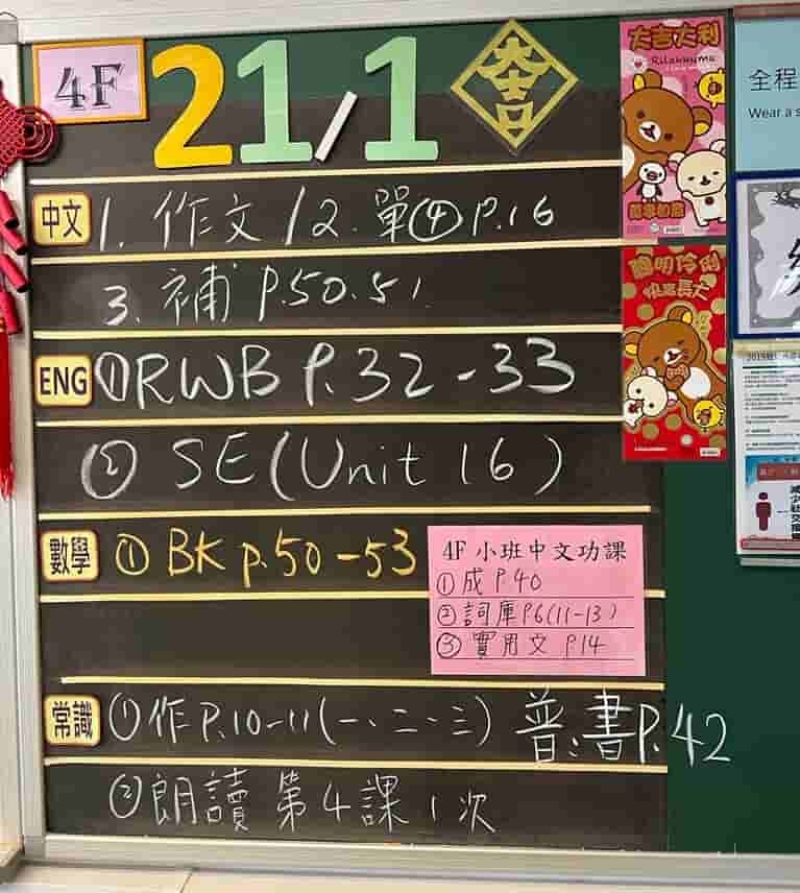 4F 21/1 大吉
中文 1. 作文 / 2. 單④ P.16
3. 補 P.50.51
ENG ① RWB P.32-33
② SE (Unit 16)
數學 ① BK p.50-53
常識 ① 作 P.10-11 (一、二、三) 普:書P.42
② 朗讀 第4課1次
4F 小班中文功課
① 成 P40
② 詞庫 P6(11-13)
③ 實用文 P14
大吉大利
Rilakkuma
萬事如意
聰明伶俐
快高長大
全程
Wear a s